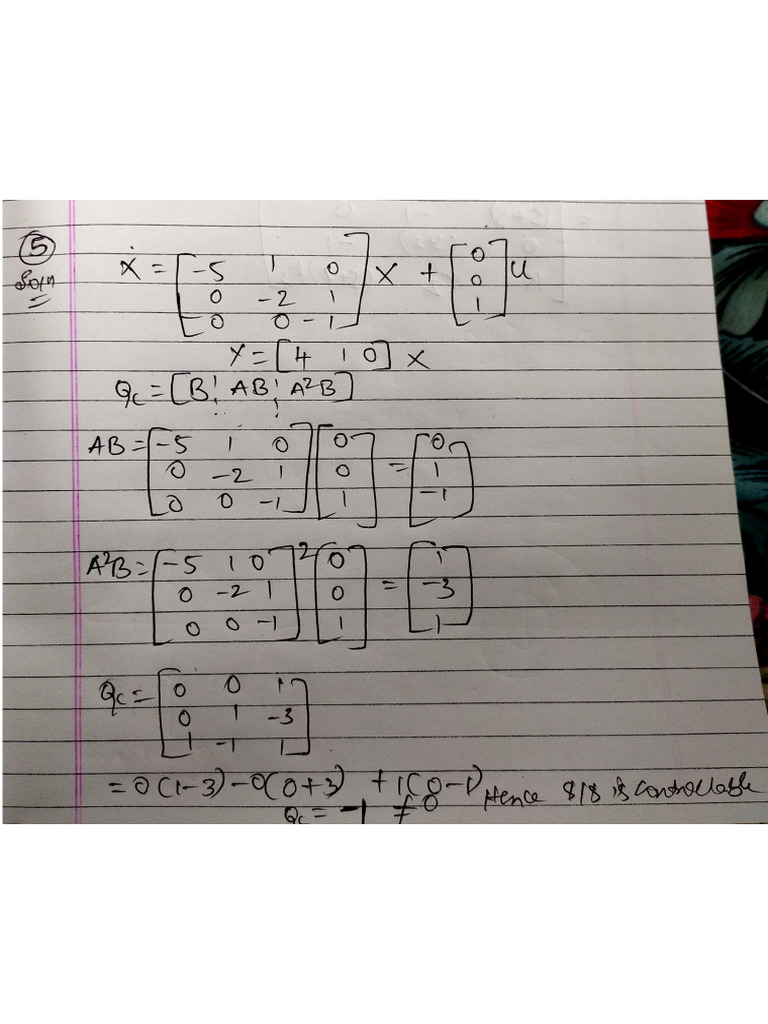 5
Soln
Ẋ = [-5 1 0 X + [0 u
0 -2 1 0
0 0 -1] 1]
Y = [4 1 0] X
Qc = [B ¦ AB ¦ A²B]
AB = [-5 1 0 [0 = [0
0 -2 1 0 1
0 0 -1] 1] -1]
A²B = [-5 1 0 ]² [0 = [1
0 -2 1 0 -3
0 0 -1 1] 1]
Qc = [0 0 1
0 1 -3
1 -1 1]
= 0(1-3) - 0(0+3) + 1(0-1) Hence s/s is controllable
Qc = -1 ≠ 0